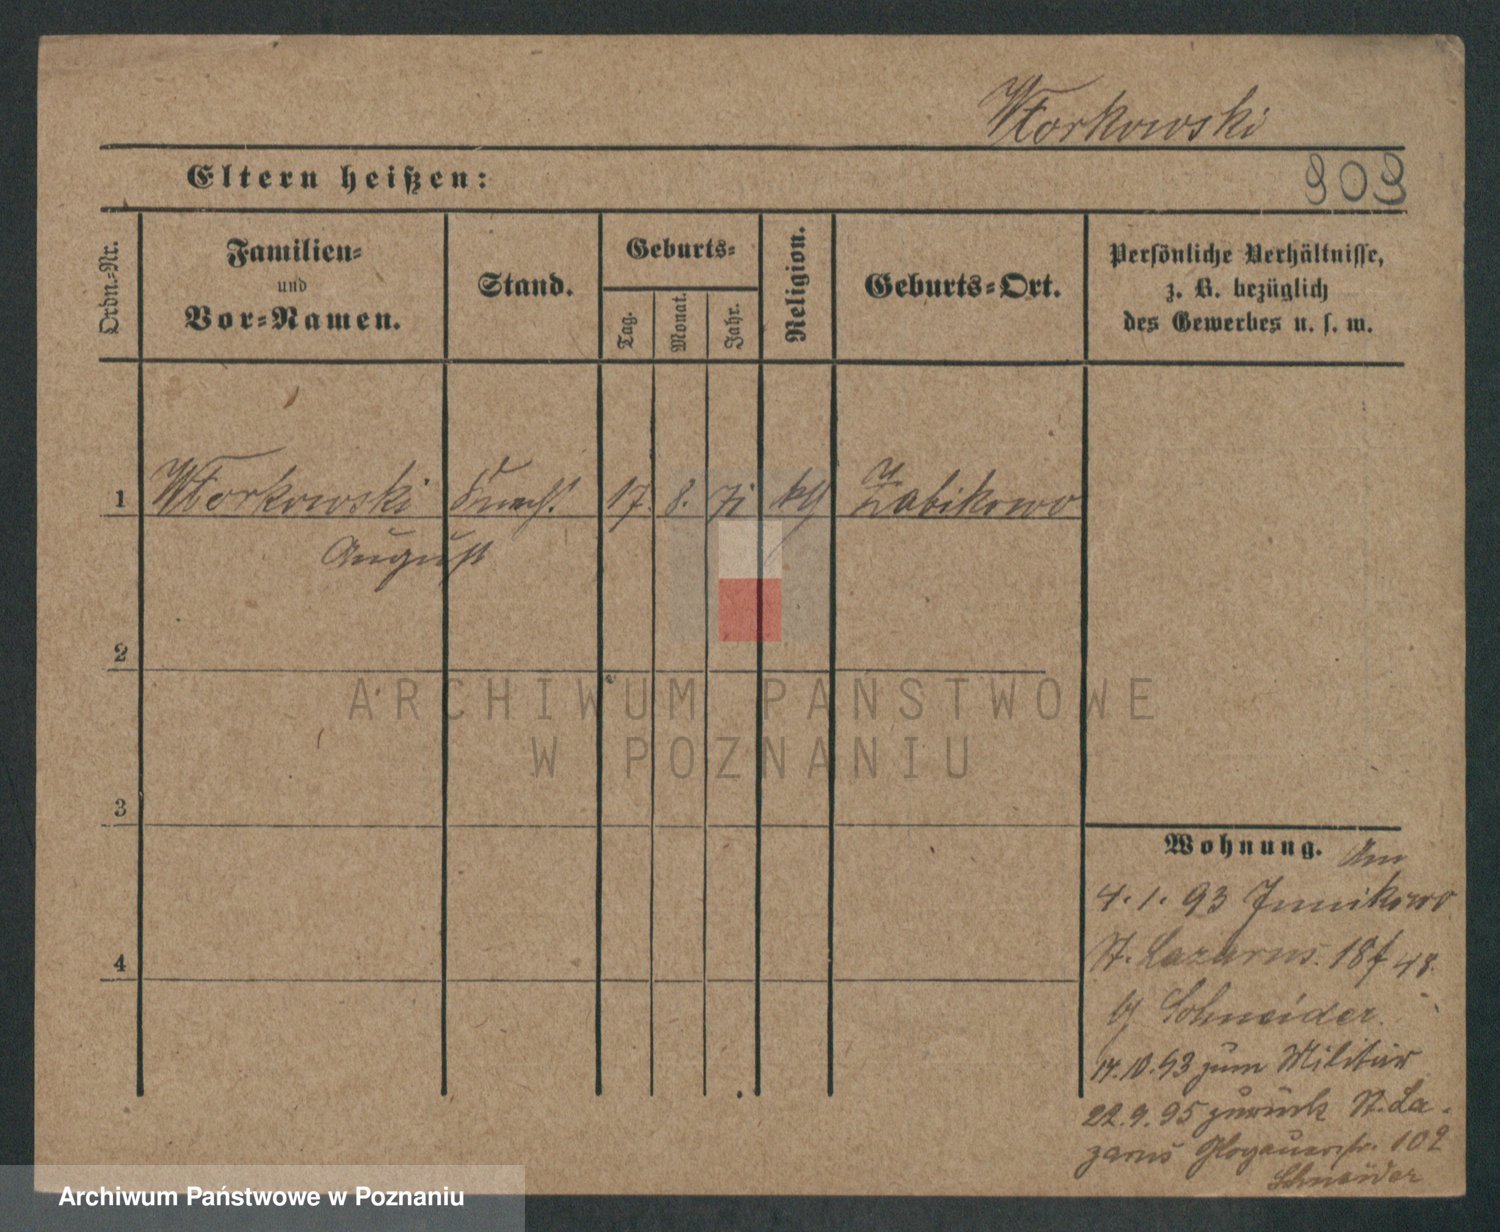 Wtorkowski
Eltern heißen:
Ordn.-Nr.
Familien-
und
Vor-Namen.
Stand.
Geburts-
Tag.
Monat.
Jahr.
Religion.
Geburts-Ort.
Persönliche Verhältnisse,
z. B. bezüglich
des Gewerbes u. s. w.
1 Wtorkowski Knecht 17. 8. 71 Zabikowo
August
2
3
4
Wohnung. Am
4. 1. 93 Junikowo
St. Lazarus. 18
b/ Schneider.
17.10.93 zum Militär
22.9.95 zurück St. La-
zarus Glogauerstr. 102
Schneider
ARCHIWUM PAŃSTWOWE
W POZNANIU
Archiwum Państwowe w Poznaniu